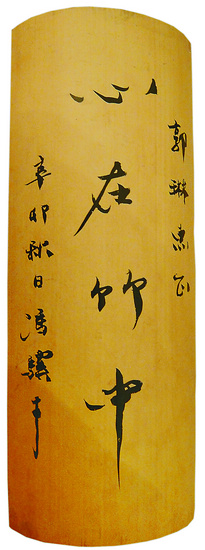 郭琳惠正
心在竹中
辛卯秋日冯骥才